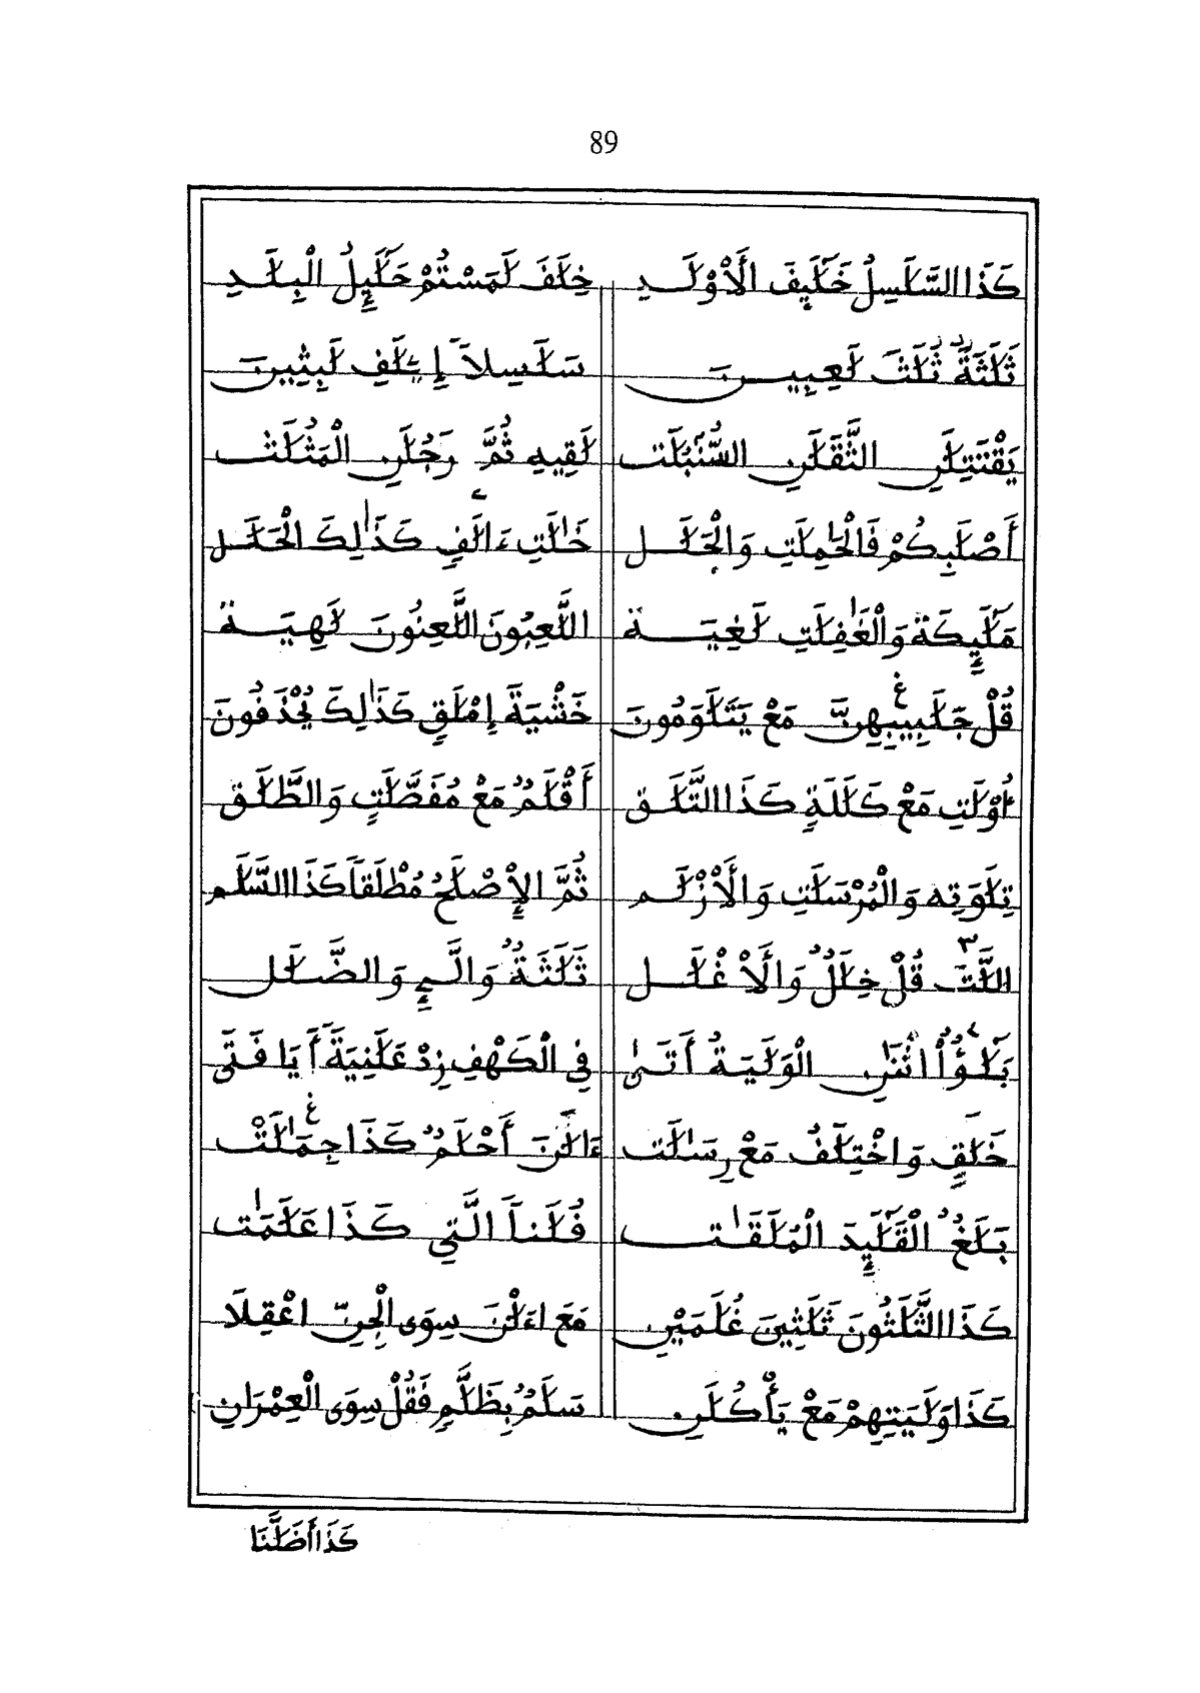 89
كَذَا السَّلَسِلُ خَلَٓئِفَ الَأوْلَـــدِ خِلَفَ لَمَسْتُمْ حَلَٓئِلُ الْبِلَـــدِ
ثَلَثَةٌ ثُلَثَ لَعِبِيـــنَ سَلَسِلاَ إِۦلَفِ لَبِثِينَ
يَقْتَتِلَنِ الثَّقَلَنِ السُّنۢبُلَت لَقِيهِ ثُمَّ رَجُلَنِ الْمَثُلَت
أَصْلَبِكُمْ فَالْحَٰمِلَتِ وَالْجَلَـــل خَٰلَتِ ءَالَفٍ كَذَٰلِكَ الْحَلَـــل
مَلَٓئِكَة وَالْغَٰفِلَتِ لَغِيَـــة اللَّعِبُونَ اللَّعِنُونَ لَهِيَـــة
قُلْ جَلَبِيبِهِنَّ مَعْ يَتَلَوَمُونَ خَشْيَةَ إِمْلَقٍ كَذَٰلِكَ يُحْذَفُونَ
أُوْلَتِ مَعْ كَلَلَةٍ كَذَا التَّلَق أَقْلَمٌ مَعْ مُفَصَّلَتٍ وَالطَّلَق
تِلَوَتِه وَالْمُرْسَلَتِ وَالَأزْلَـــم ثُمَّ الإِصْلَحُ مُطْلَقاً كَذَا السَّلَم
اللَّتَ قُلْ خِلَلٌ وَالَأغْلَـــل ثَلَثَةٌ وَالَّـٓـِٔ وَالضَّلَـــل
بَلَٰٓؤٌاْ اثْنَٰنِ الْوَلَيَةُ أَتَىٰ فِي الْكَهْفِ زِدْ عَلَنِيَةً أَيَا فَتَى
خَلَقٍ وَاخْتِلَفُ مَعْ رِسَٰلَت ءَالَٰنَ أَحْلَمٌ كَذَا جِمَٰلَتْ
بَلَغٌ الْقَلَٓئِدَ الْمُلَقَـٰت فُلَناً الَّتِي كَذَا عَلَمَٰت
كَذَا الثَّلَثُونَ ثَلَثِينَ غُلَمَيْنِ مَعَ اءَلْنَ سِوَى الْجِنِّ اعْقِلَا
كَذَا وَلَيَتِهِمْ مَعْ يَأْكُلَنِ سَلَمٌ بِظَلَّمٍ فَقُلْ سِوَى الْعِمْرَانِ
كَذَا أَضَلَّنَا